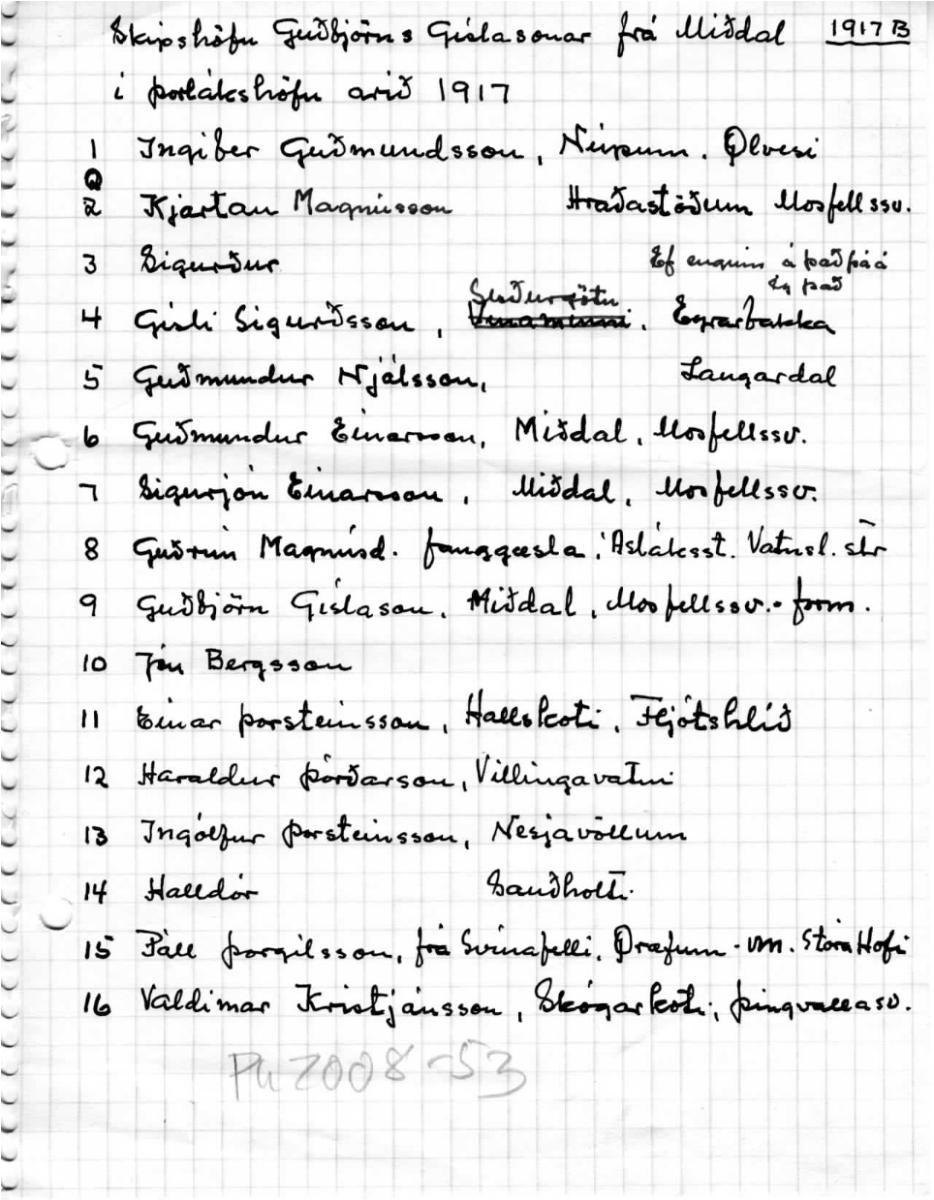 Skipshöfn Guðbjörns Gíslasonar frá Miðdal 1917 B
í þorlákshöfn arið 1917
1 Ingiber Guðmundsson, Núpum. Ölvesi
2 Kjartan Magnússon Hraðastöðum Mosfellssv.
3 Sigurður Ef enginn á það þá á
ég það
Suðurgötu
4 Gísli Sigurðsson, Vinaminni. Eyrarbakka
5 Guðmundur Njálsson, Laugardal
6 Guðmundur Einarsson, Miðdal, Mosfellssv.
7 Sigurjón Einarsson, Miðdal, Mosfellssv.
8 Guðrún Magnúsd. fanggæsla, Asláksst. Vatnsl. str
9 Guðbjörn Gíslason, Miðdal, Mosfellssv. - form.
10 Jón Bergsson
11 Einar þorsteinsson, Hallskoti, Fljótshlíð
12 Haraldur þórðarson, Villingavatni
13 Ingólfur þorsteinsson, Nesjavöllum
14 Halldór Sandholti.
15 Páll þorgilsson, frá Svínafelli, Öræfum - vm. Stóra Hofi
16 Valdimar Kristjánsson, Skógarkoti, þingvallasv.
2008-53